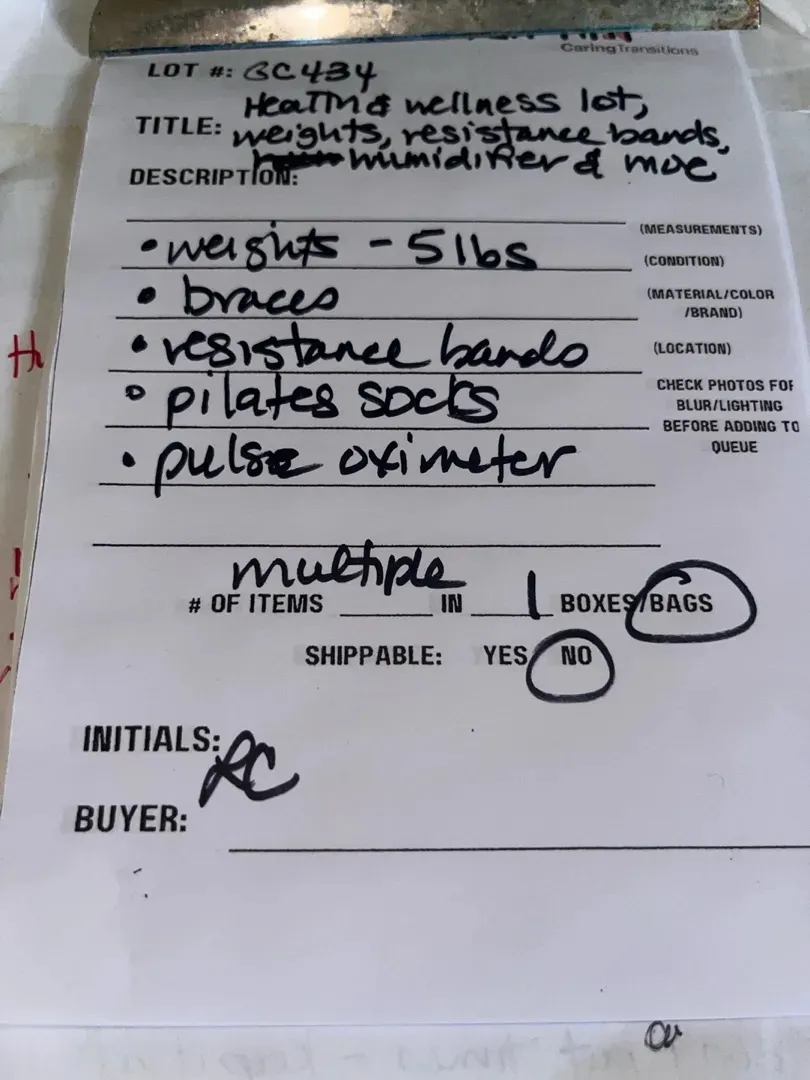 Caring Transitions
LOT #: BC434
Health & wellness lot,
TITLE: weights, resistance bands,
humidifier & moe
DESCRIPTION:
(MEASUREMENTS)
• weights - 5 lbs
(CONDITION)
• braces
(MATERIAL/COLOR
/BRAND)
• resistance bands
(LOCATION)
• pilates socks
CHECK PHOTOS FOR
BLUR/LIGHTING
BEFORE ADDING TO
QUEUE
• pulse oximeter
# OF ITEMS multiple IN 1 BOXES/BAGS
SHIPPABLE: YES NO
INITIALS: RC
BUYER: